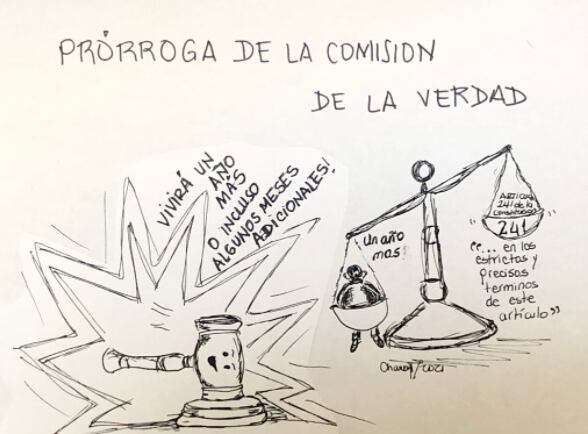 PRÓRROGA DE LA COMISION
DE LA VERDAD
VIVIRÁ UN
AÑO
MAS
O INCLUSO
ALGUNOS MESES
ADICIONALES!
un año
mas
Articulo
241 de la
Constitución
"241"
"... en los
estrictos y
precisos
terminos
de este
artículo"
2021